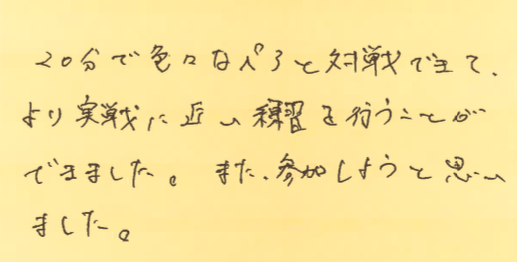 20分で色々なペアと対戦できて、
より実戦に近い練習を行うことが
できました。また、参加しようと思い
ました。